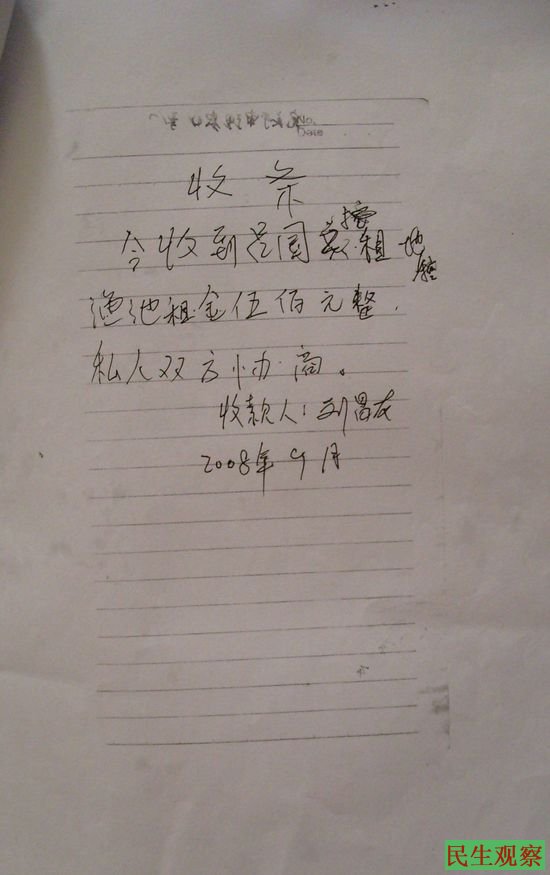 No.
Date
收条
今收到范围租地
渔池租金伍佰元整.
私人双方协商。
收款人:刘昌友
2008年9月
民生观察